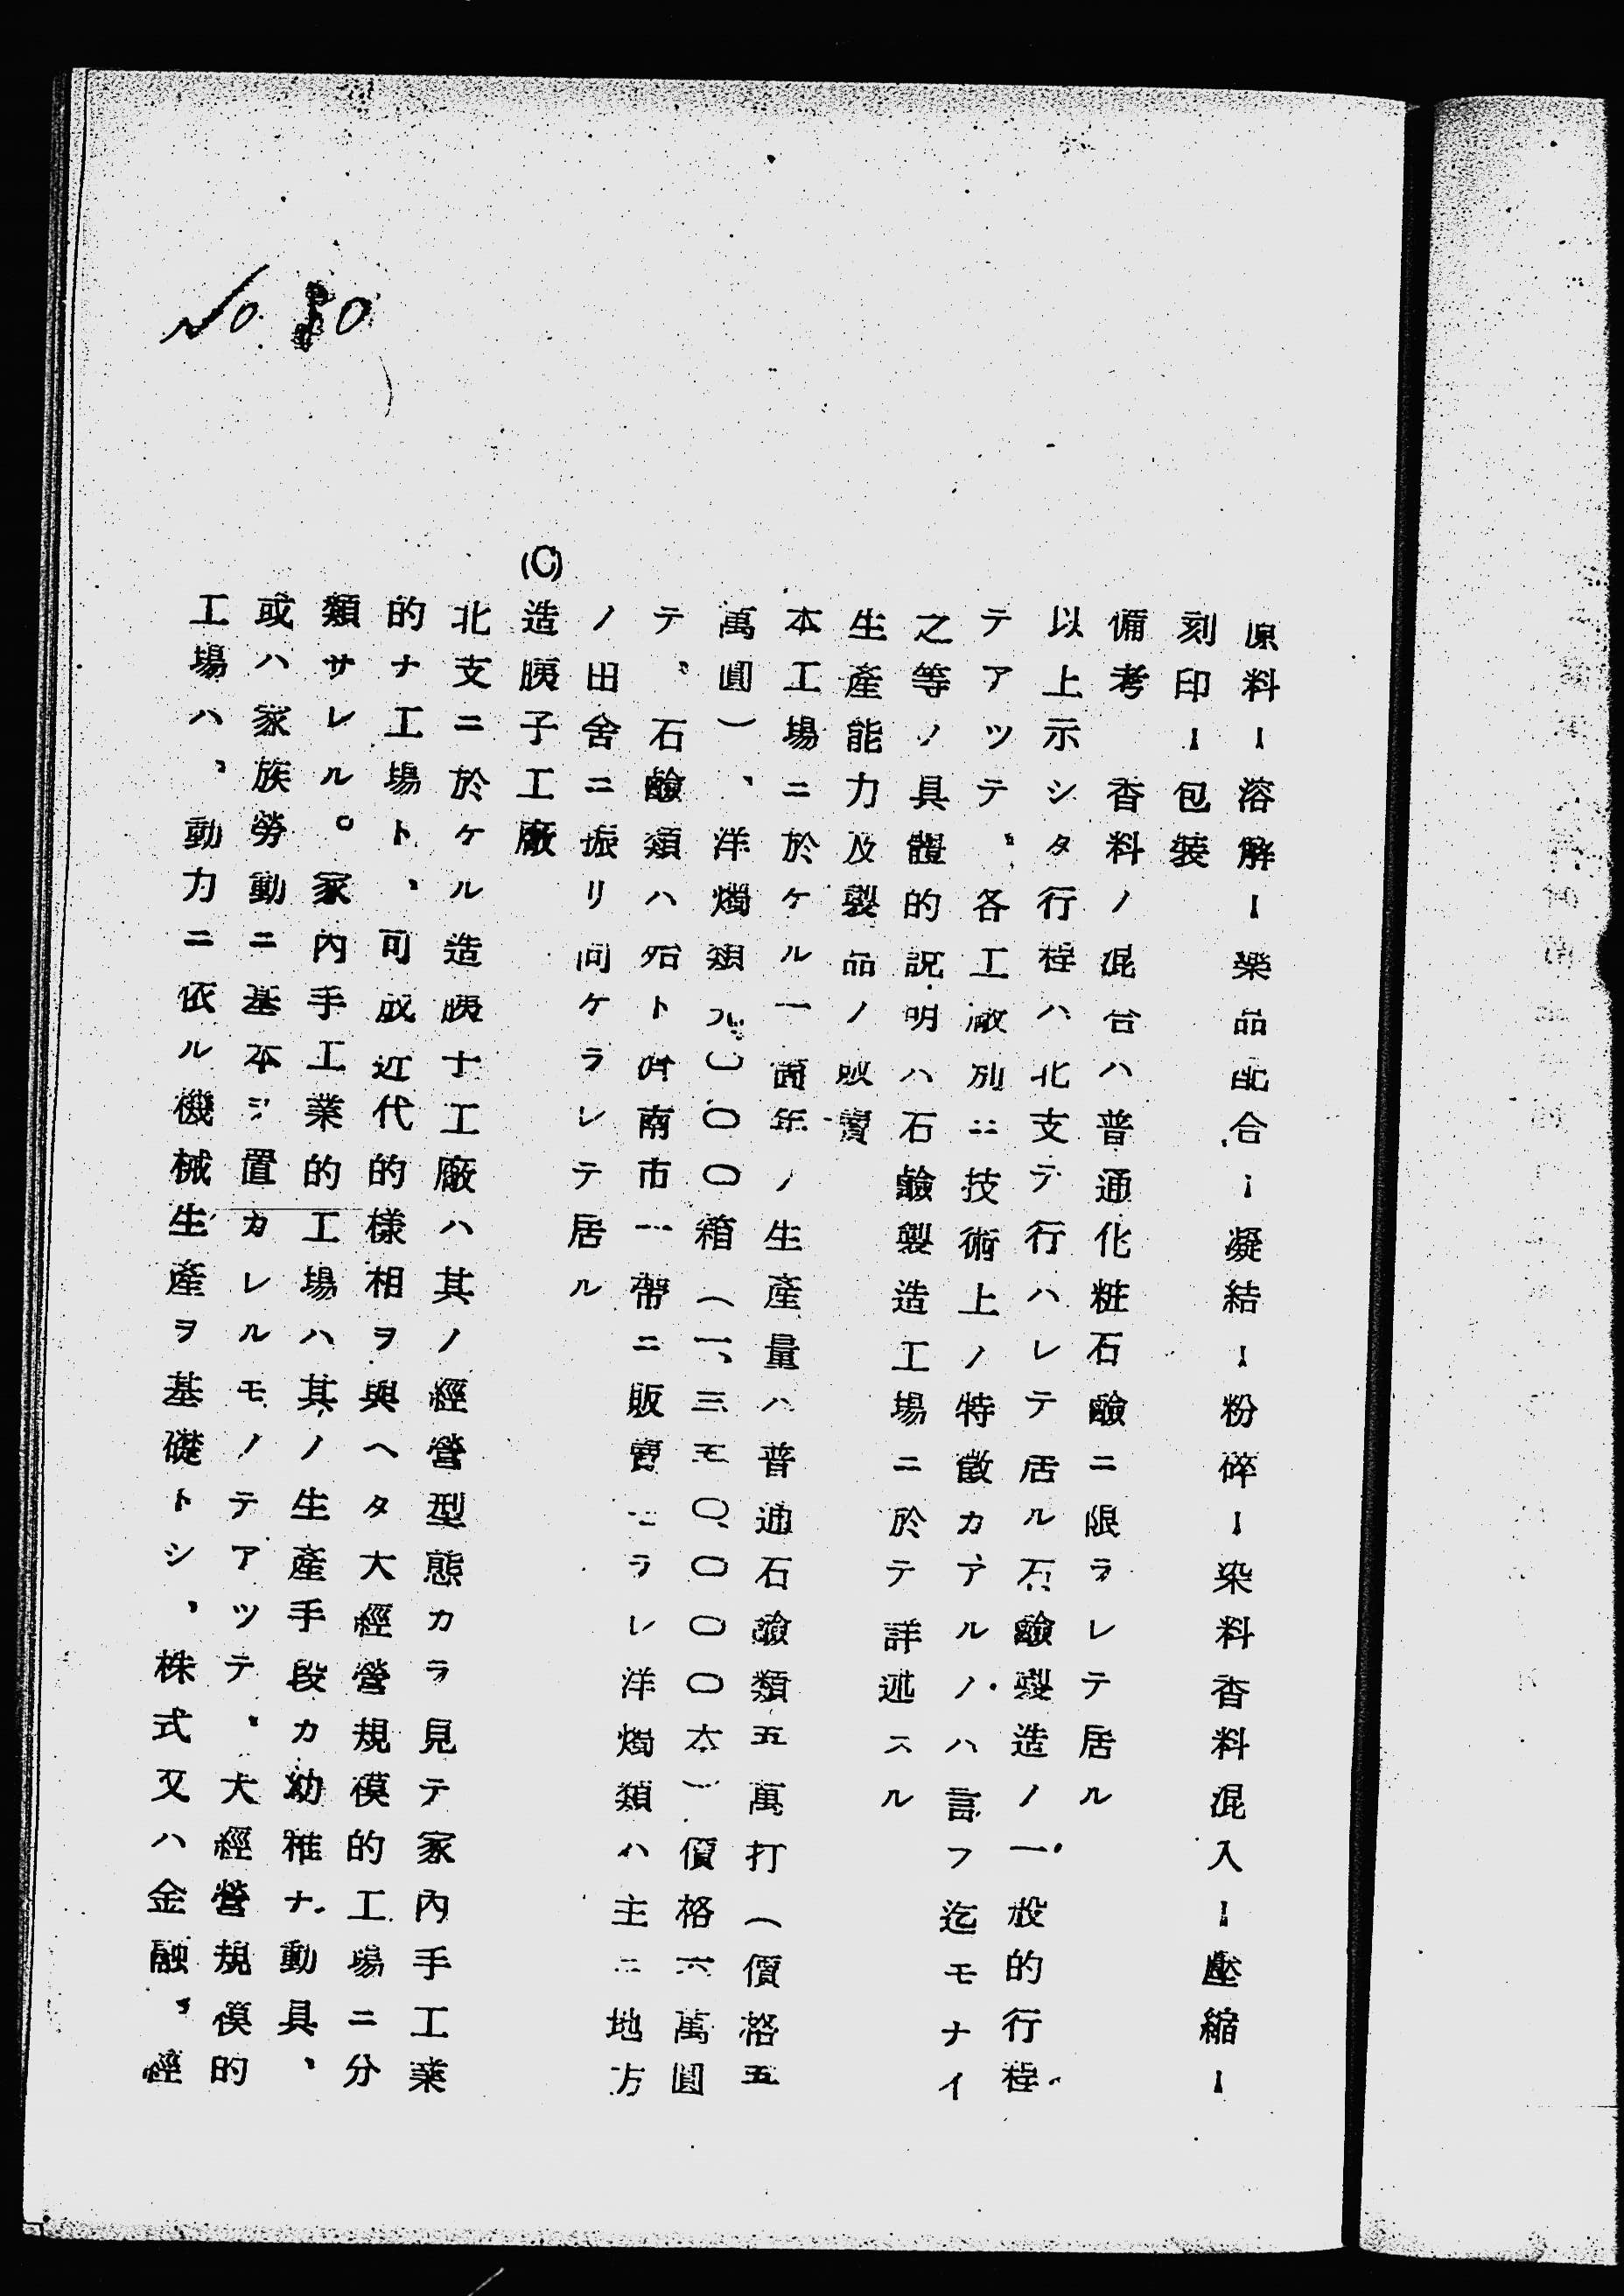 No. 80
原料ー溶解ー藥品配合ー凝結ー粉碎ー染料香料混入ー壓縮ー
刻印ー包裝
備考　香料ノ混合ハ普通化粧石鹼ニ限ラレテ居ル
以上示シタ行程ハ北支テ行ハレテ居ル石鹼製造ノ一般的行程
テアツテ、各工廠別ニ技術上ノ特徵カアルノハ言フ迄モナイ
之等ノ具體的説明ハ石鹼製造工場ニ於テ詳述スル
生產能力及製品ノ販賣
本工場ニ於ケル一箇年ノ生產量ハ普通石鹼類五萬打（價格五
萬圓）、洋燭類九〇〇〇箱（一、三五〇、〇〇〇本）價格六萬圓
テ、石鹼類ハ殆ト濟南市一帶ニ販賣セラレ洋燭類ハ主ニ地方
ノ田舍ニ振リ向ケラレテ居ル
(C)造胰子工廠
北支ニ於ケル造胰子工廠ハ其ノ經營型態カラ見テ家內手工業
的ナ工場ト、可成近代的樣相ヲ與ヘタ大經營規模的工場ニ分
類サレル。家內手工業的工場ハ其ノ生產手段カ幼稚ナ動具、
或ハ家族勞動ニ基本ヲ置カレルモノテアツテ、大經營規模的
工場ハ、動力ニ依ル機械生產ヲ基礎トシ、株式又ハ金融、經